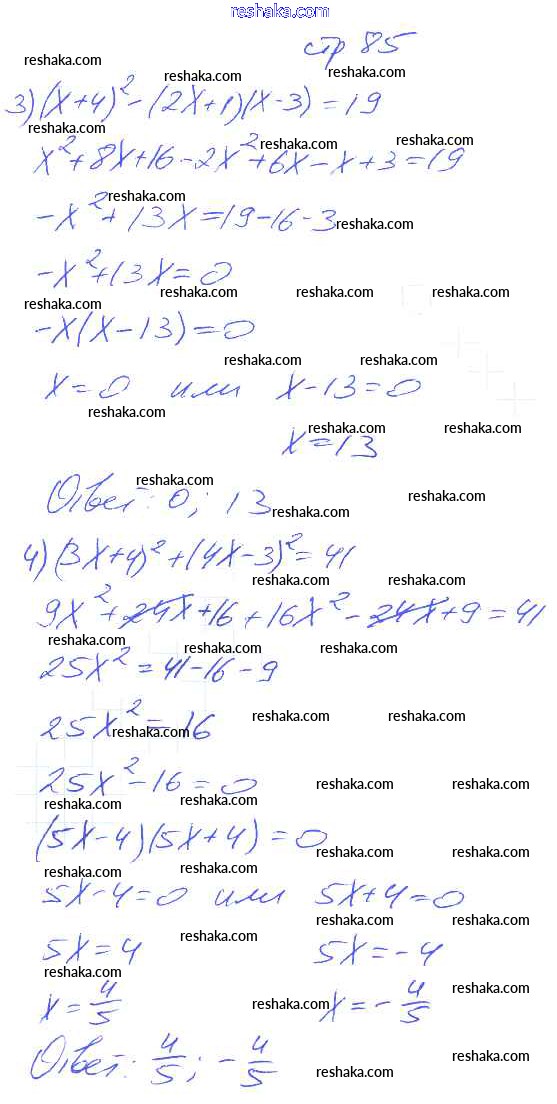 reshaka.com
стр 85
reshaka.com
reshaka.com reshaka.com
3) (x+4)² - (2x+1)(x-3) = 19
reshaka.com reshaka.com reshaka.com
x² + 8x + 16 - 2x² + 6x - x + 3 = 19
reshaka.com
-x² + 13x = 19 - 16 - 3
reshaka.com
-x² + 13x = 0
reshaka.com reshaka.com reshaka.com
reshaka.com
-x(x - 13) = 0
reshaka.com reshaka.com
x = 0 или x - 13 = 0
reshaka.com
reshaka.com reshaka.com
x = 13
reshaka.com
Ответ: 0; 13
reshaka.com reshaka.com
4) (3x+4)² + (4x-3)² = 41
reshaka.com reshaka.com
9x² + 24x + 16 + 16x² - 24x + 9 = 41
reshaka.com reshaka.com reshaka.com
25x² = 41 - 16 - 9
reshaka.com reshaka.com
25x² = 16
reshaka.com
25x² - 16 = 0
reshaka.com reshaka.com
reshaka.com reshaka.com
(5x - 4)(5x + 4) = 0
reshaka.com reshaka.com
reshaka.com reshaka.com
5x - 4 = 0 или 5x + 4 = 0
reshaka.com reshaka.com
5x = 4 5x = -4
reshaka.com
reshaka.com reshaka.com
x = 4/5 x = - 4/5
reshaka.com reshaka.com
Ответ: 4/5; - 4/5
reshaka.com reshaka.com